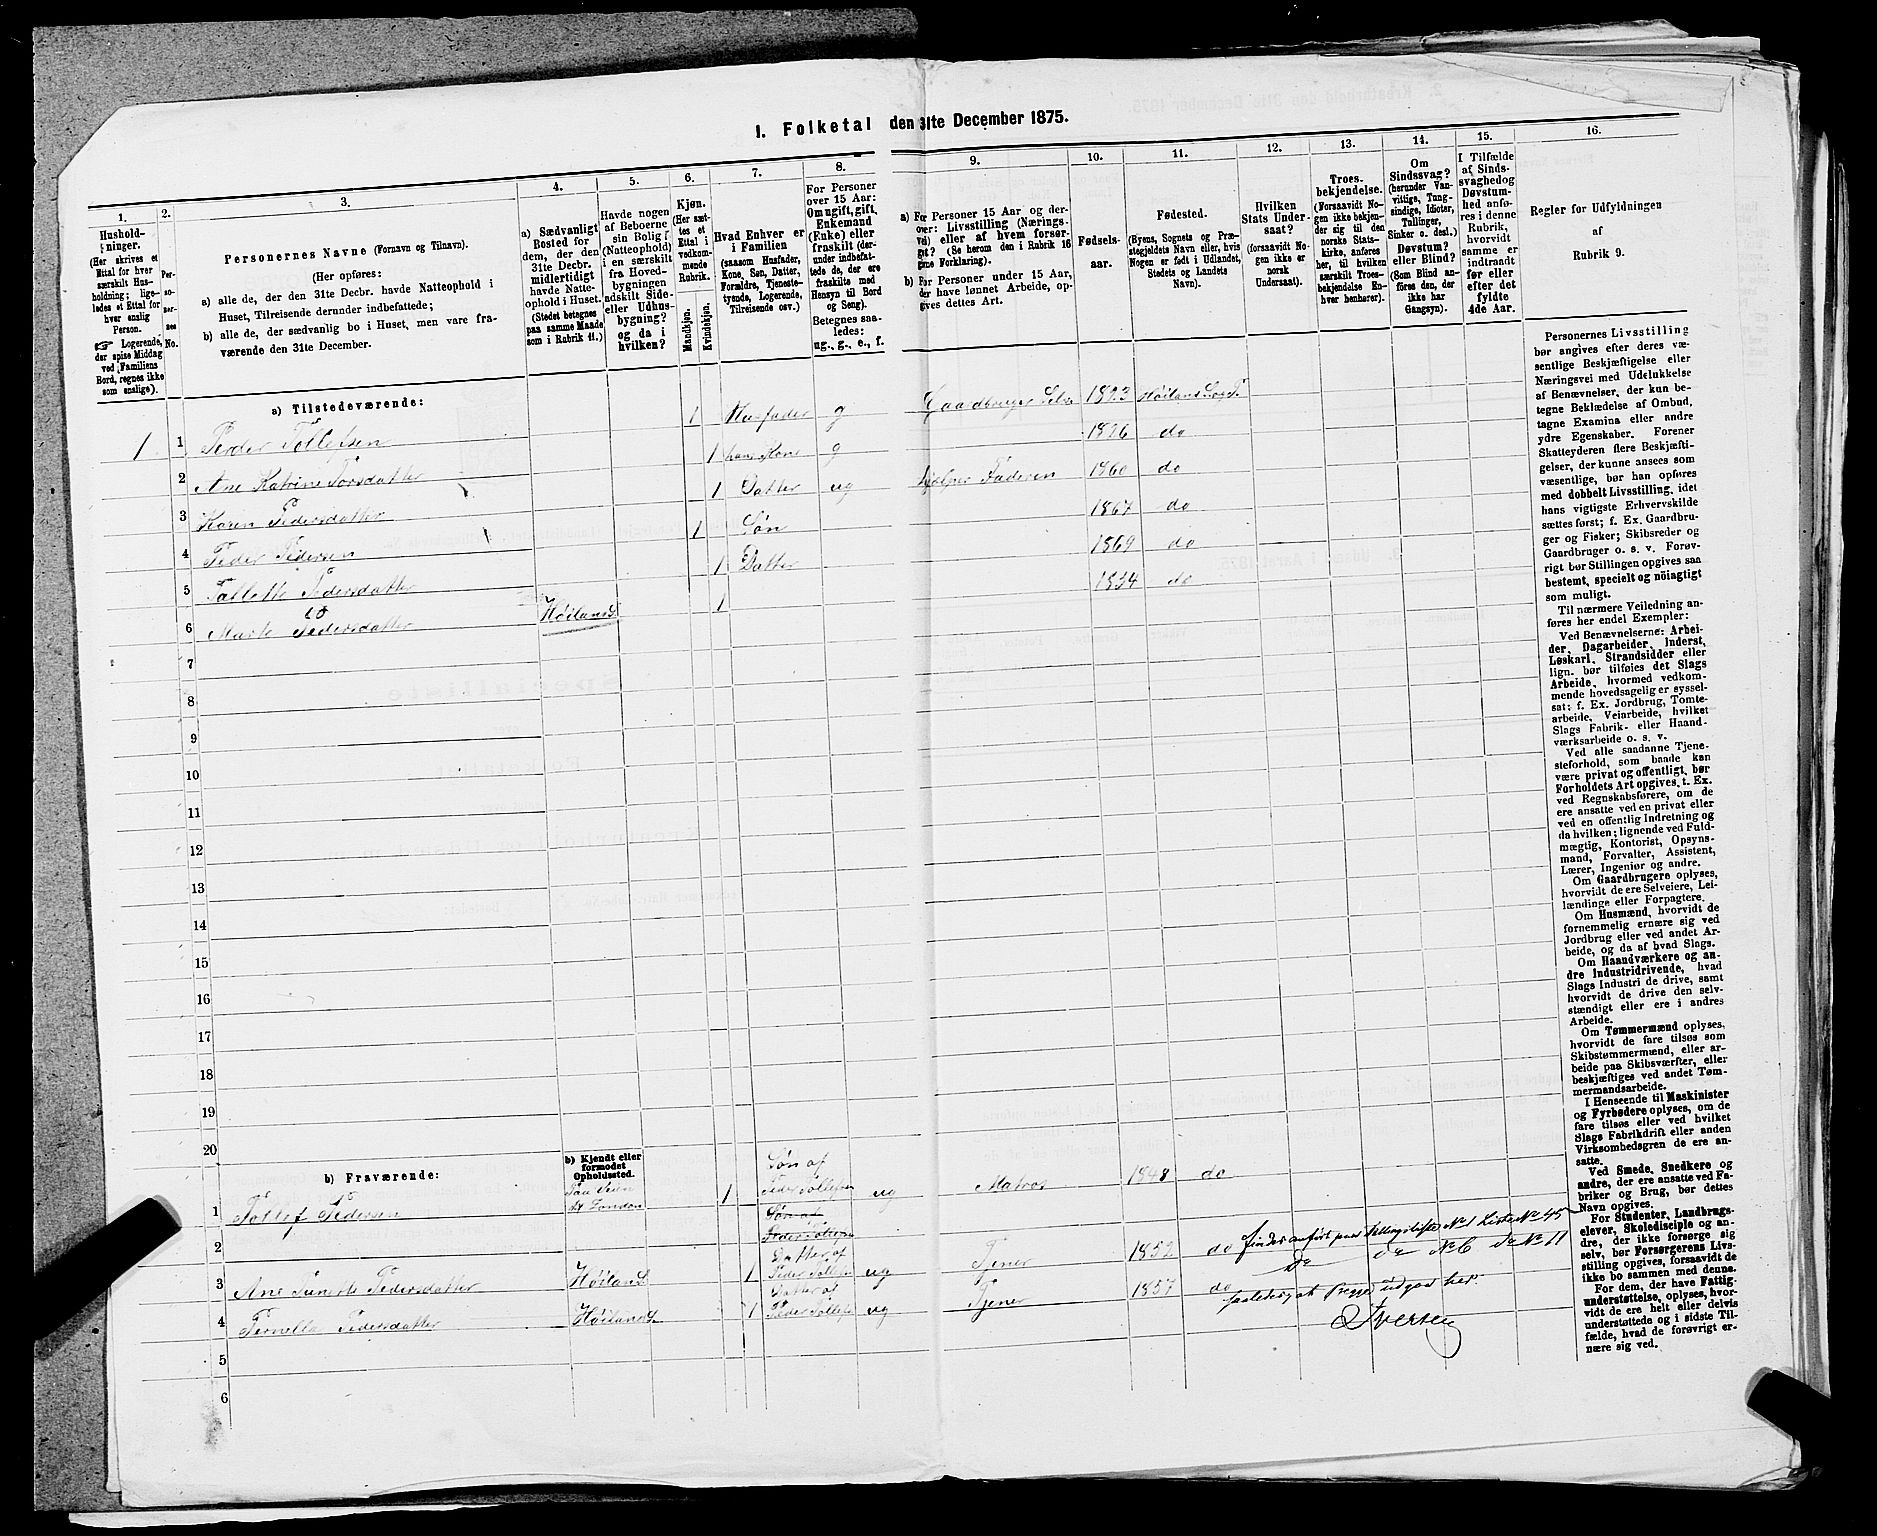 I. Folketal den 31te December 1875.
1. 2. 3. 4. 5. 6. 7. 8. 9. 10. 11. 12. 13. 14. 15. 16.
Hushold-
ninger.
(Her skrives et
Ettal for hver
særskilt Hus-
holdning; lige-
ledes et Ettal for
hver enslig
Person.
☞ Logerende,
der spise Middag
ved Familiens
Bord, regnes ikke
som enslige).
Per-
so-
ner-
nes
No.
Personernes Navne (Fornavn og Tilnavn).
(Her opføres:
a) alle de, der den 31te Decbr. havde Natteophold i
Huset, Tilreisende derunder indbefattede;
b) alle de, der sædvanlig bo i Huset, men vare fra-
værende den 31te December.
a) Sædvanligt
Bosted for
dem, der den
31te Decbr.
midlertidigt
havde Natte-
ophold i Huset.
(Stedet betegnes
paa samme Maade
som i Rubrik 11.)
Havde nogen
af Beboerne
sin Bolig
(Natteophold)
i en særskilt
fra Hoved-
bygningen
adskilt Side-
eller Udhus-
bygning?
og da i
hvilken?
Kjøn.
(Her sæt-
tes et
Ettal i
vedkom-
mende
Rubrik.
Mandkjøn.
Kvindekjøn.
Hvad Enhver er
i Familien
(saasom Husfader,
Kone, Søn, Datter,
Forældre, Tjeneste-
tyende, Logerende,
Tilreisende osv.)
For Personer
over 15 Aar:
Om ugift, gift,
Enkemand
(Enke) eller
fraskilt (der-
under indbefat-
tede de, der ere
fraskilte med
Hensyn til Bord
og Seng).
Betegnes saa-
ledes:
ug., g., e., f.
a) For Personer 15 Aar og der-
over: Livsstilling (Nærings-
vei) eller af hvem forsør-
get? (Se herom den i Rubrik 16
givne Forklaring).
b) For Personer under 15 Aar,
der have lønnet Arbeide, op-
gives dettes Art.
Fødsels-
aar.
Fødested.
(Byens, Sognets og Præ-
stegjeldets Navn eller, hvis
Nogen er født i Udlandet,
Stedets og Landets
Navn).
Hvilken
Stats Under-
saat?
(forsaavidt No-
gen ikke er
norsk
Undersaat).
Troes-
bekjendelse.
(Forsaavidt No-
gen ikke bekjen-
der sig til den
norske Stats-
kirke, anføres
her, til hvilken
særskilt Troes-
bekjendelse En-
hver henhører).
Om
Sindssvag?
(herunder Van-
vittige, Tung-
sindige, Idioter,
Tullinger,
Sinker o. desl.)
Døvstum?
eller Blind?
(Som Blind an-
føres den, der
ikke har
Gangsyn).
I Tilfælde
af Sinds-
svaghed og
Døvstum-
hed anfø-
res i denne
Rubrik,
hvorvidt
samme er
indtraadt
før eller
efter det
fyldte
4de Aar.
Regler for Udfyldningen
af
Rubrik 9.
a) Tilstedeværende:
1 1 Peder Tollefsen 1 Husfader g Gaardbruger Selv 1823
2 Ane Katrine Torsdatter 1 hans Kone g 1826 do
3 Karen Pedersdatter 1 Datter ug hjelper Faderen 1860 do
4 Peder Pedersen 1 Søn 1867 do
5 Tallette Pedersdatter 1 Datter 1869 do
6 Marte Pedersdatter Høiland 1 1834 do
7
8
9
10
11
12
13
14
15
16
17
18
19
20
b) Fraværende:
b) Kjendt eller
formodet
Opholdssted.
1 Tollef Pedersen London 1 Søn af Peder Tollefsen ug Matros 1848 do
2 Søn af Peder Tollefsen
3 Ane Pedersdatter Høiland 1 Datter af Peder Tollefs ug Tjener 1852 do findes anført paa Tællingsliste No 1 Liste No 45
4 Pernella Pedersdatter Høiland 1 Datter af Peder Tollefs ug Tjener 1857 do Do do No 6 Do No 11
saaledes, at Begge udgaa her.
Iversen
5
6
Personernes Livsstilling
bør angives efter deres væ-
sentlige Beskjæftigelse eller
Næringsvei med Udelukkelse
af Benævnelser, der kun be-
tegne Beklædelse af Ombud,
tagne Examina eller andre
ydre Egenskaber. Forener
Skatteyderen flere Beskjæfti-
gelser, der kunne ansees som
væsentlige, bør han opføres
med dobbelt Livsstilling, idet
hans vigtigste Erhvervskilde
sættes først; f. Ex. Gaardbru-
ger og Fisker; Skibsreder og
Gaardbruger o. s. v. Forøv-
rigt bør Stillingen opgives saa
bestemt, specielt og nöiagtigt
som muligt.
Til nærmere Veiledning an-
føres her endel Exempler:
Ved Benævnelserne: Arbei-
der, Dagarbeider, Inderst,
Løskarl, Strandsidder eller
lign. bør tilføies det Slags
Arbeide, hvormed vedkom-
mende hovedsagelig er syssel-
sat; f. Ex. Jordbrug, Tomte-
arbeide, Veiarbeide, hvilket
Slags Fabrik- eller Haand-
værksarbeide o. s. v.
Ved alle saadanne Tjene-
steforhold, som baade kan
være privat og offentligt, bør
Forholdets Art opgives, t. Ex.
ved Regnskabsførere, om de
ere ansatte ved en privat eller
ved en offentlig Indretning og
da hvilken; lignende ved Fuld-
mægtig, Kontorist, Opsyns-
mand, Forvalter, Assistent,
Lærer, Ingeniør og andre.
Om Gaardbrugere oplyses,
hvorvidt de ere Selveiere, Lei-
lændinge eller Forpagtere.
Om Husmænd, hvorvidt de
fornemmelig ernære sig ved
Jordbrug eller ved andet Ar-
beide, og da af hvad Slags.
Om Haandværkere og an-
dre Industridrivende, hvad
Slags Industri de drive, samt
hvorvidt de drive den selv-
stændigt eller ere i andres
Arbeide.
Om Tømmermænd oplyses,
hvorvidt de fare tilsøs som
Skibstømmermænd, eller ar-
beide paa Skibsværfter, eller
beskjæftiges ved andet Tøm-
mermandsarbeide.
I Henseende til Maskinister
og Fyrbødere oplyses, om de
fare tilsøs eller ved hvilket
Slags Fabrikdrift eller anden
Virksomhedsgren de ere an-
satte.
Ved Smede, Snedkere og
andre, der ere ansatte ved Fa-
briker og Brug, bør dettes
Navn opgives.
For Studenter, Landbrugs-
elever, Skoledisciple og an-
dre, der ikke forsørge sig
selv, bør Forsørgerens Livs-
stilling opgives, forsaavidt de
ikke bo sammen med denne.
For dem, der have Fattig-
understøttelse, oplyses, hvor-
vidt de ere helt eller delvis
understøttede og i sidste Til-
fælde, hvad de forøvrigt er-
nære sig ved.